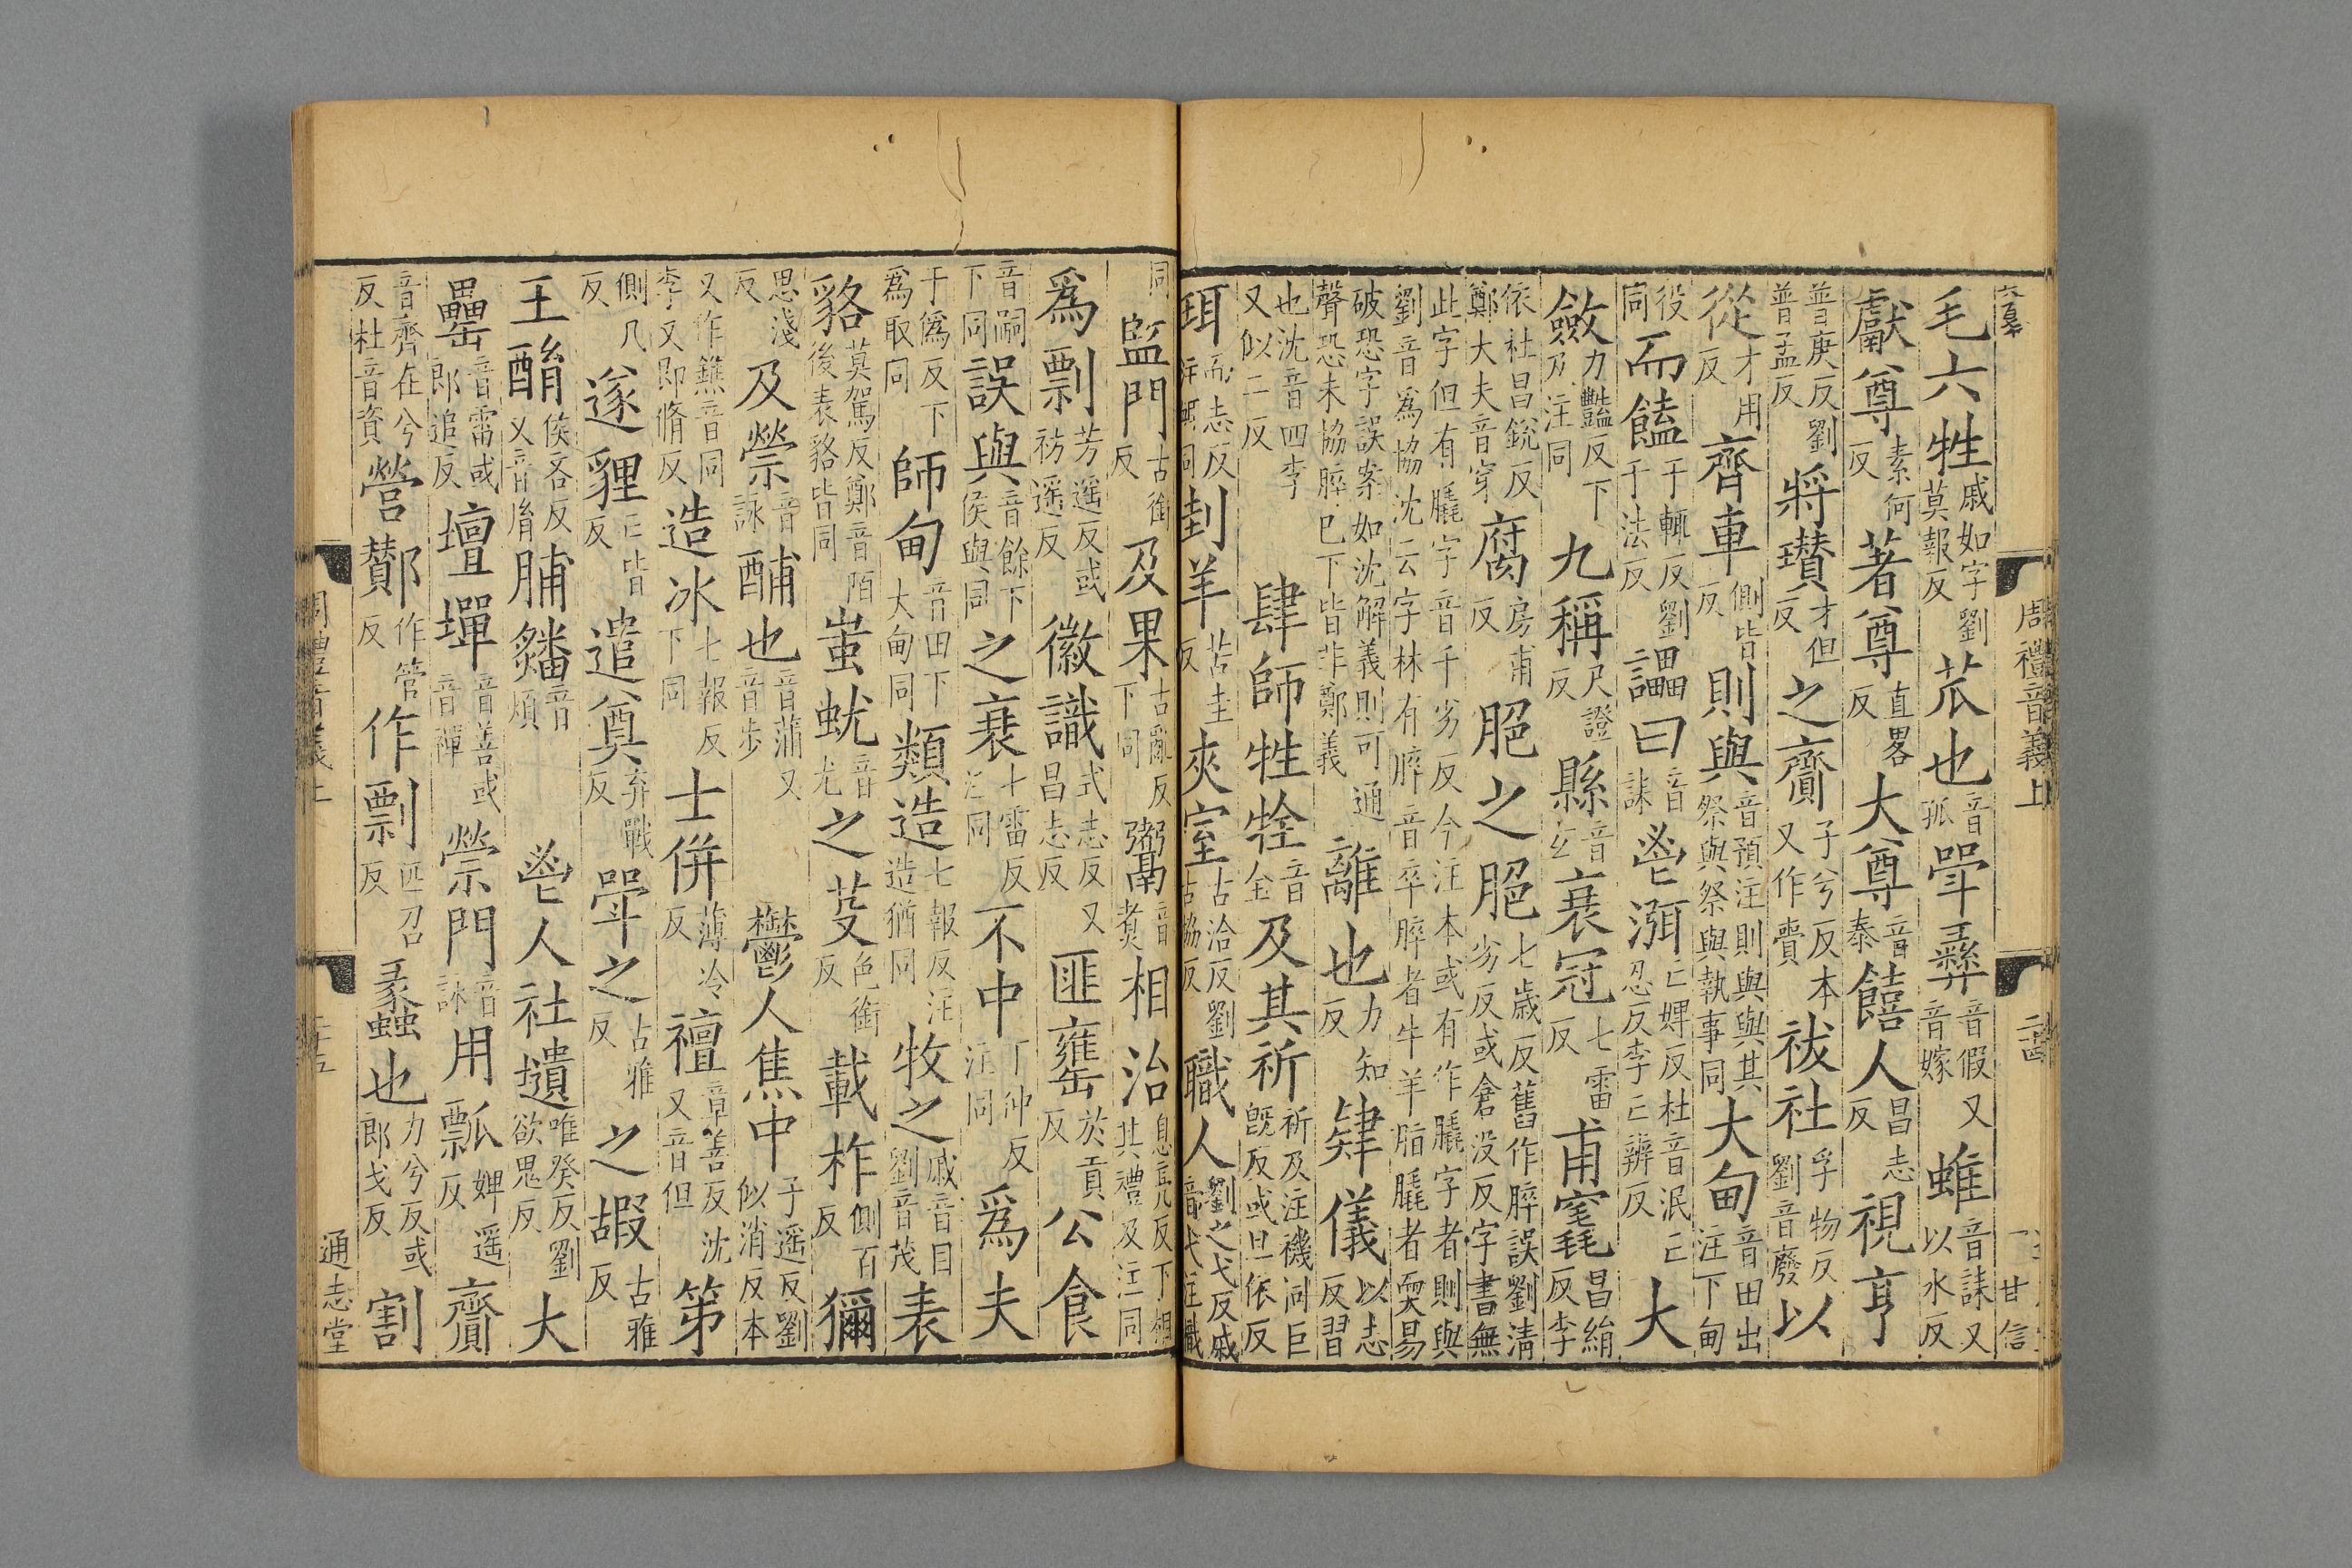 周禮音義上
甘信
毛六牲戚如字劉莫報反苽也音孤斝彝音假又音嫁蜼音誄又以水反
獻尊素何反著尊直畧反大尊音泰饎人昌志反視亨
普庚反劉普孟反將瓚才但反之齎子兮反本又作賷祓社孚物反劉音廢以
從才用反齊車側皆反則與音預注則與與其祭與祭與執事同大甸音田出注下甸
役同而饁于輒反劉于法反讄曰音誄鬯渳亡婢反杜音泯亡忍反李亡辨反大
斂力豔反下及注同九稱尺證反縣音玄衰冠七雷反甫竁昌絹反李
依社昌銳反鄭大夫音穿腐房甫反脃之脃七歲反舊作脺誤劉清劣反或倉没反字書無
此字但有膬字音千劣反今注本或有作膬字者則與劉音爲協沈云字林有脺音卒脺者牛羊脂膬者耎易
破恐字誤案如沈解義則可通聲恐未協脺已下皆非鄭義離也力知反肄儀以志反習
也沈音四李又似二反肆師牲牷音全及其祈祈及注禨同巨既反或旦依反
珥而志反注衈同刲羊苦圭反夾室古洽反劉古協反職人劉之弋反戚音弋注樴
同監門古銜反及果古亂反下同鬻音煑相治息亮反下相其禮及注同
爲剽芳遥反或祊遥反徽識式志反又昌志反匪罋於貢反公食
音嗣下同誤與音餘下侯與同之衰七雷反注同不中丁仲反注同爲夫
于僞反下爲取同師甸音田下大甸同類造七報反注造猶同牧之戚音目劉音茂表
貉莫駕反鄭音陌後表貉皆同蚩蚘音尤之芟色銜反載柞側百反獮
思淺反及禜音詠酺也音蒲又音步鬱人焦中子遥反劉似消反本
又作鐎音同李又即脩反造冰七報反下同士併薄冷反襢章善反沈又音但第
側几反遂貍亡皆反遣奠弃戰反斝之古雅反之嘏古雅反
王酳侯吝反又音胤脯鱕音煩鬯人社壝唯癸反劉欲鬼反大
罍音雷或郎追反壇墠音善或音禪禜門音詠用瓢婢遥反齎
音齊在兮反杜音資營酇作管反作剽匹召反蠡也力兮反或郎戈反割
通志堂